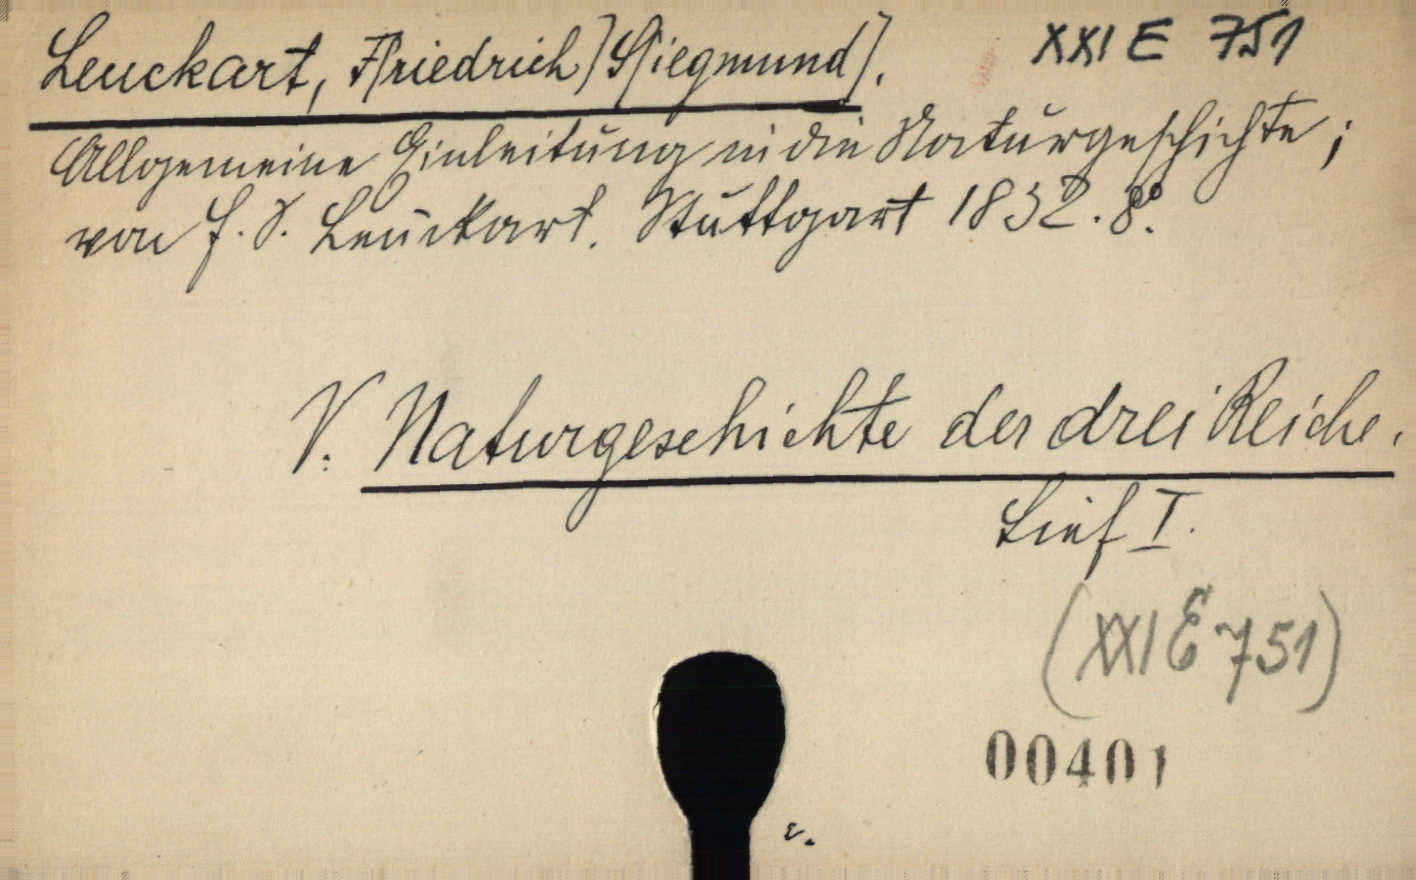 Leuckart, F[riedrich] S[iegmund]. XXI E 751
Allgemeine Einleitung in die Naturgeschichte;
von F. S. Leuckart. Stuttgart 1832. 8°.
V. Naturgeschichte der drei Reiche.
Lief I.
(XXI E 751)
00401